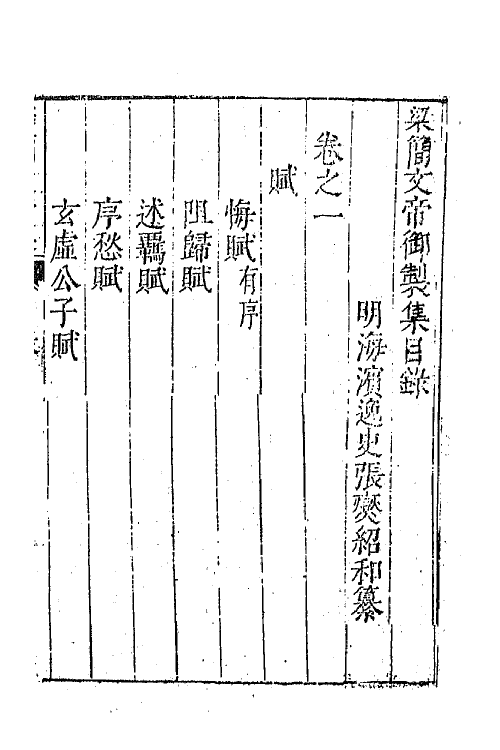 梁簡文帝御製集目錄
明海濱逸史張燮紹和纂
卷之一
賦
悔賦有序
阻歸賦
述羈賦
序愁賦
玄虛公子賦